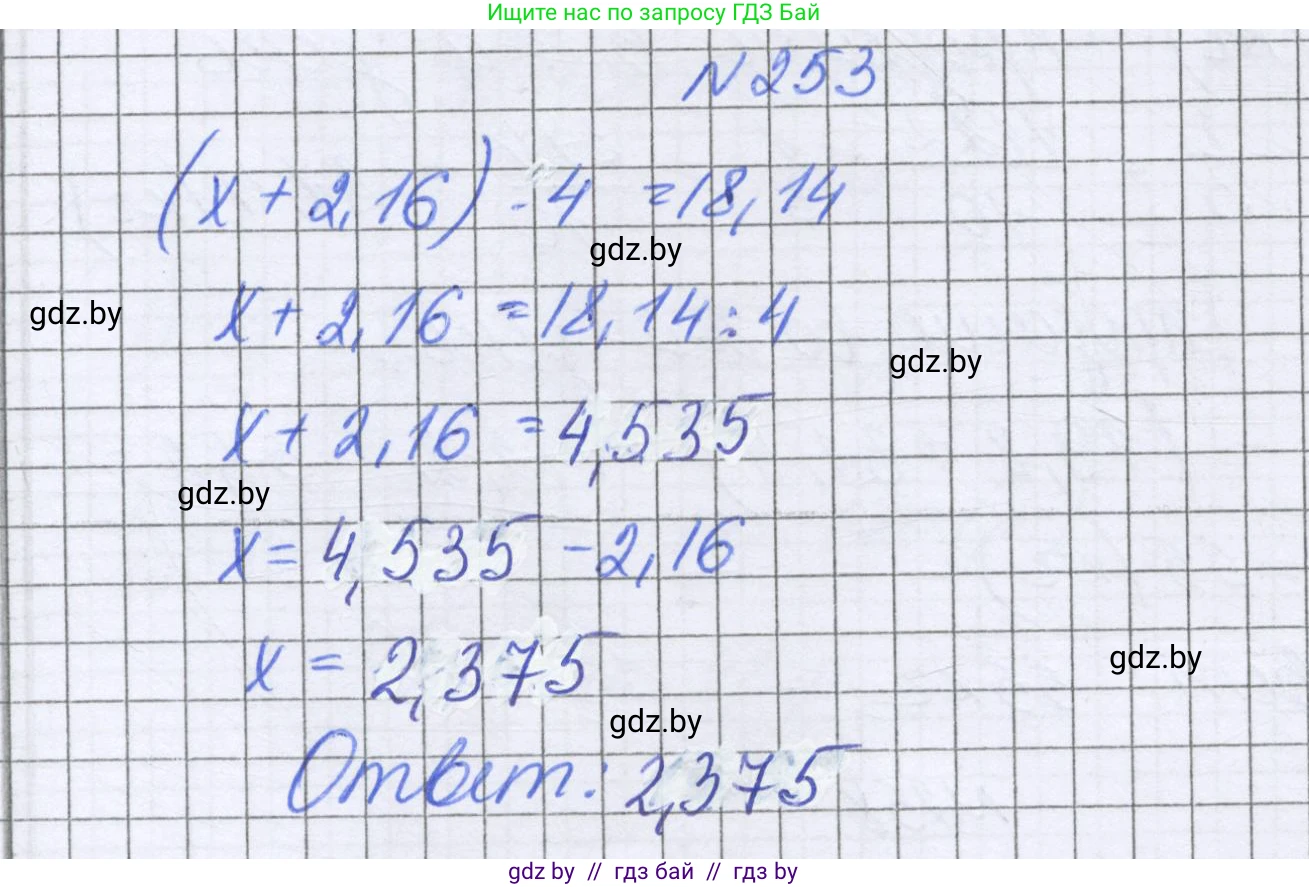 Ищите нас по запросу ГДЗ Бай
N 253
(x + 2,16) · 4 = 18,14
gdz.by
x + 2,16 = 18,14 : 4
gdz.by
gdz.by
x + 2,16 = 4,535
gdz.by
x = 4,535 - 2,16
x = 2,375
gdz.by
gdz.by
Ответ: 2,375
gdz by // гдз бай // гдз by